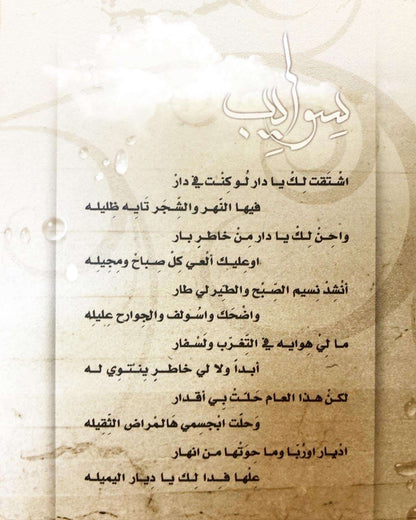 سواليب
اشْتَقت لِكْ يا دار لُو كِنْت في دارْ
فيها النَهر والشَّجَر تَايه ظَليله
واحِنْ لكْ يا دار مِنْ خاطرٍ بار
اوعليك ألْعي كلْ صِباحْ ومِجيله
أنْشدْ نسيم الصِّبْح والطّير لي طار
واضْحك واسُولف والجوارح عِليله
ما ليْ هوايه في التِغرّب ولَسْفار
أبداً ولا لي خاطرٍ ينْتوي له
لكنْ هذا العام حلّتْ بي أقدار
وَحلّت ابْجسمي هَالمْراض الثّقِيله
ادْيار اورُبّا وما حِوَتْها من انهار
عِلْها فِدا لك يا ديار اليميله